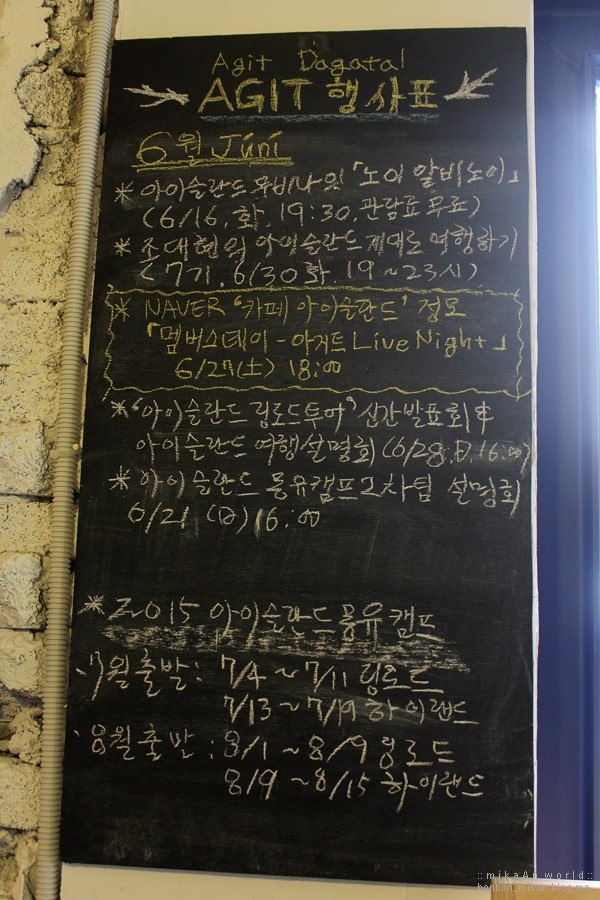 Agit Dagatal
AGIT 행사표
6월 Júní
* 아이슬란드 무비나잇 「노이 알비노이」
(6/16.화. 19:30. 관람료 무료)
* 조대현의 아이슬란드 제대로 여행하기
(7기. 6/30 화 19~23시)
* NAVER '카페 아이슬란드' 정모
「멤버스데이 - 아지트 Live Night」
6/27(土) 18:00
* '아이슬란드 링로드투어' 신간발표회 및
아이슬란드 여행설명회 (6/28.日.16:00)
* 아이슬란드 몽유캠프 2차팀 설명회
6/21 (日) 16:00
* 2015 아이슬란드 몽유캠프
7월 출발: 7/4 ~ 7/11 링로드
7/13 ~ 7/19 하이랜드
8월 출발: 8/1 ~ 8/9 링로드
8/9 ~ 8/15 하이랜드
::mikaAn world::
bonbon_mikan.blog.me